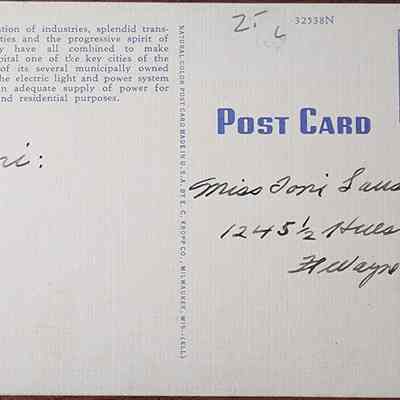 ation of industries, splendid trans-
ties and the progressive spirit of
y have all combined to make
pital one of the key cities of the
of its several municipally owned
he electric light and power system
n adequate supply of power for
nd residential purposes.
ni:
NATURAL COLOR POST CARD MADE IN U.S.A. BY E. C. KROPP CO., MILWAUKEE, WIS.—(ELL)
25
32538N
POST CARD
Miss Toni Laus
1245 1/2 Hues
Ft Wayn